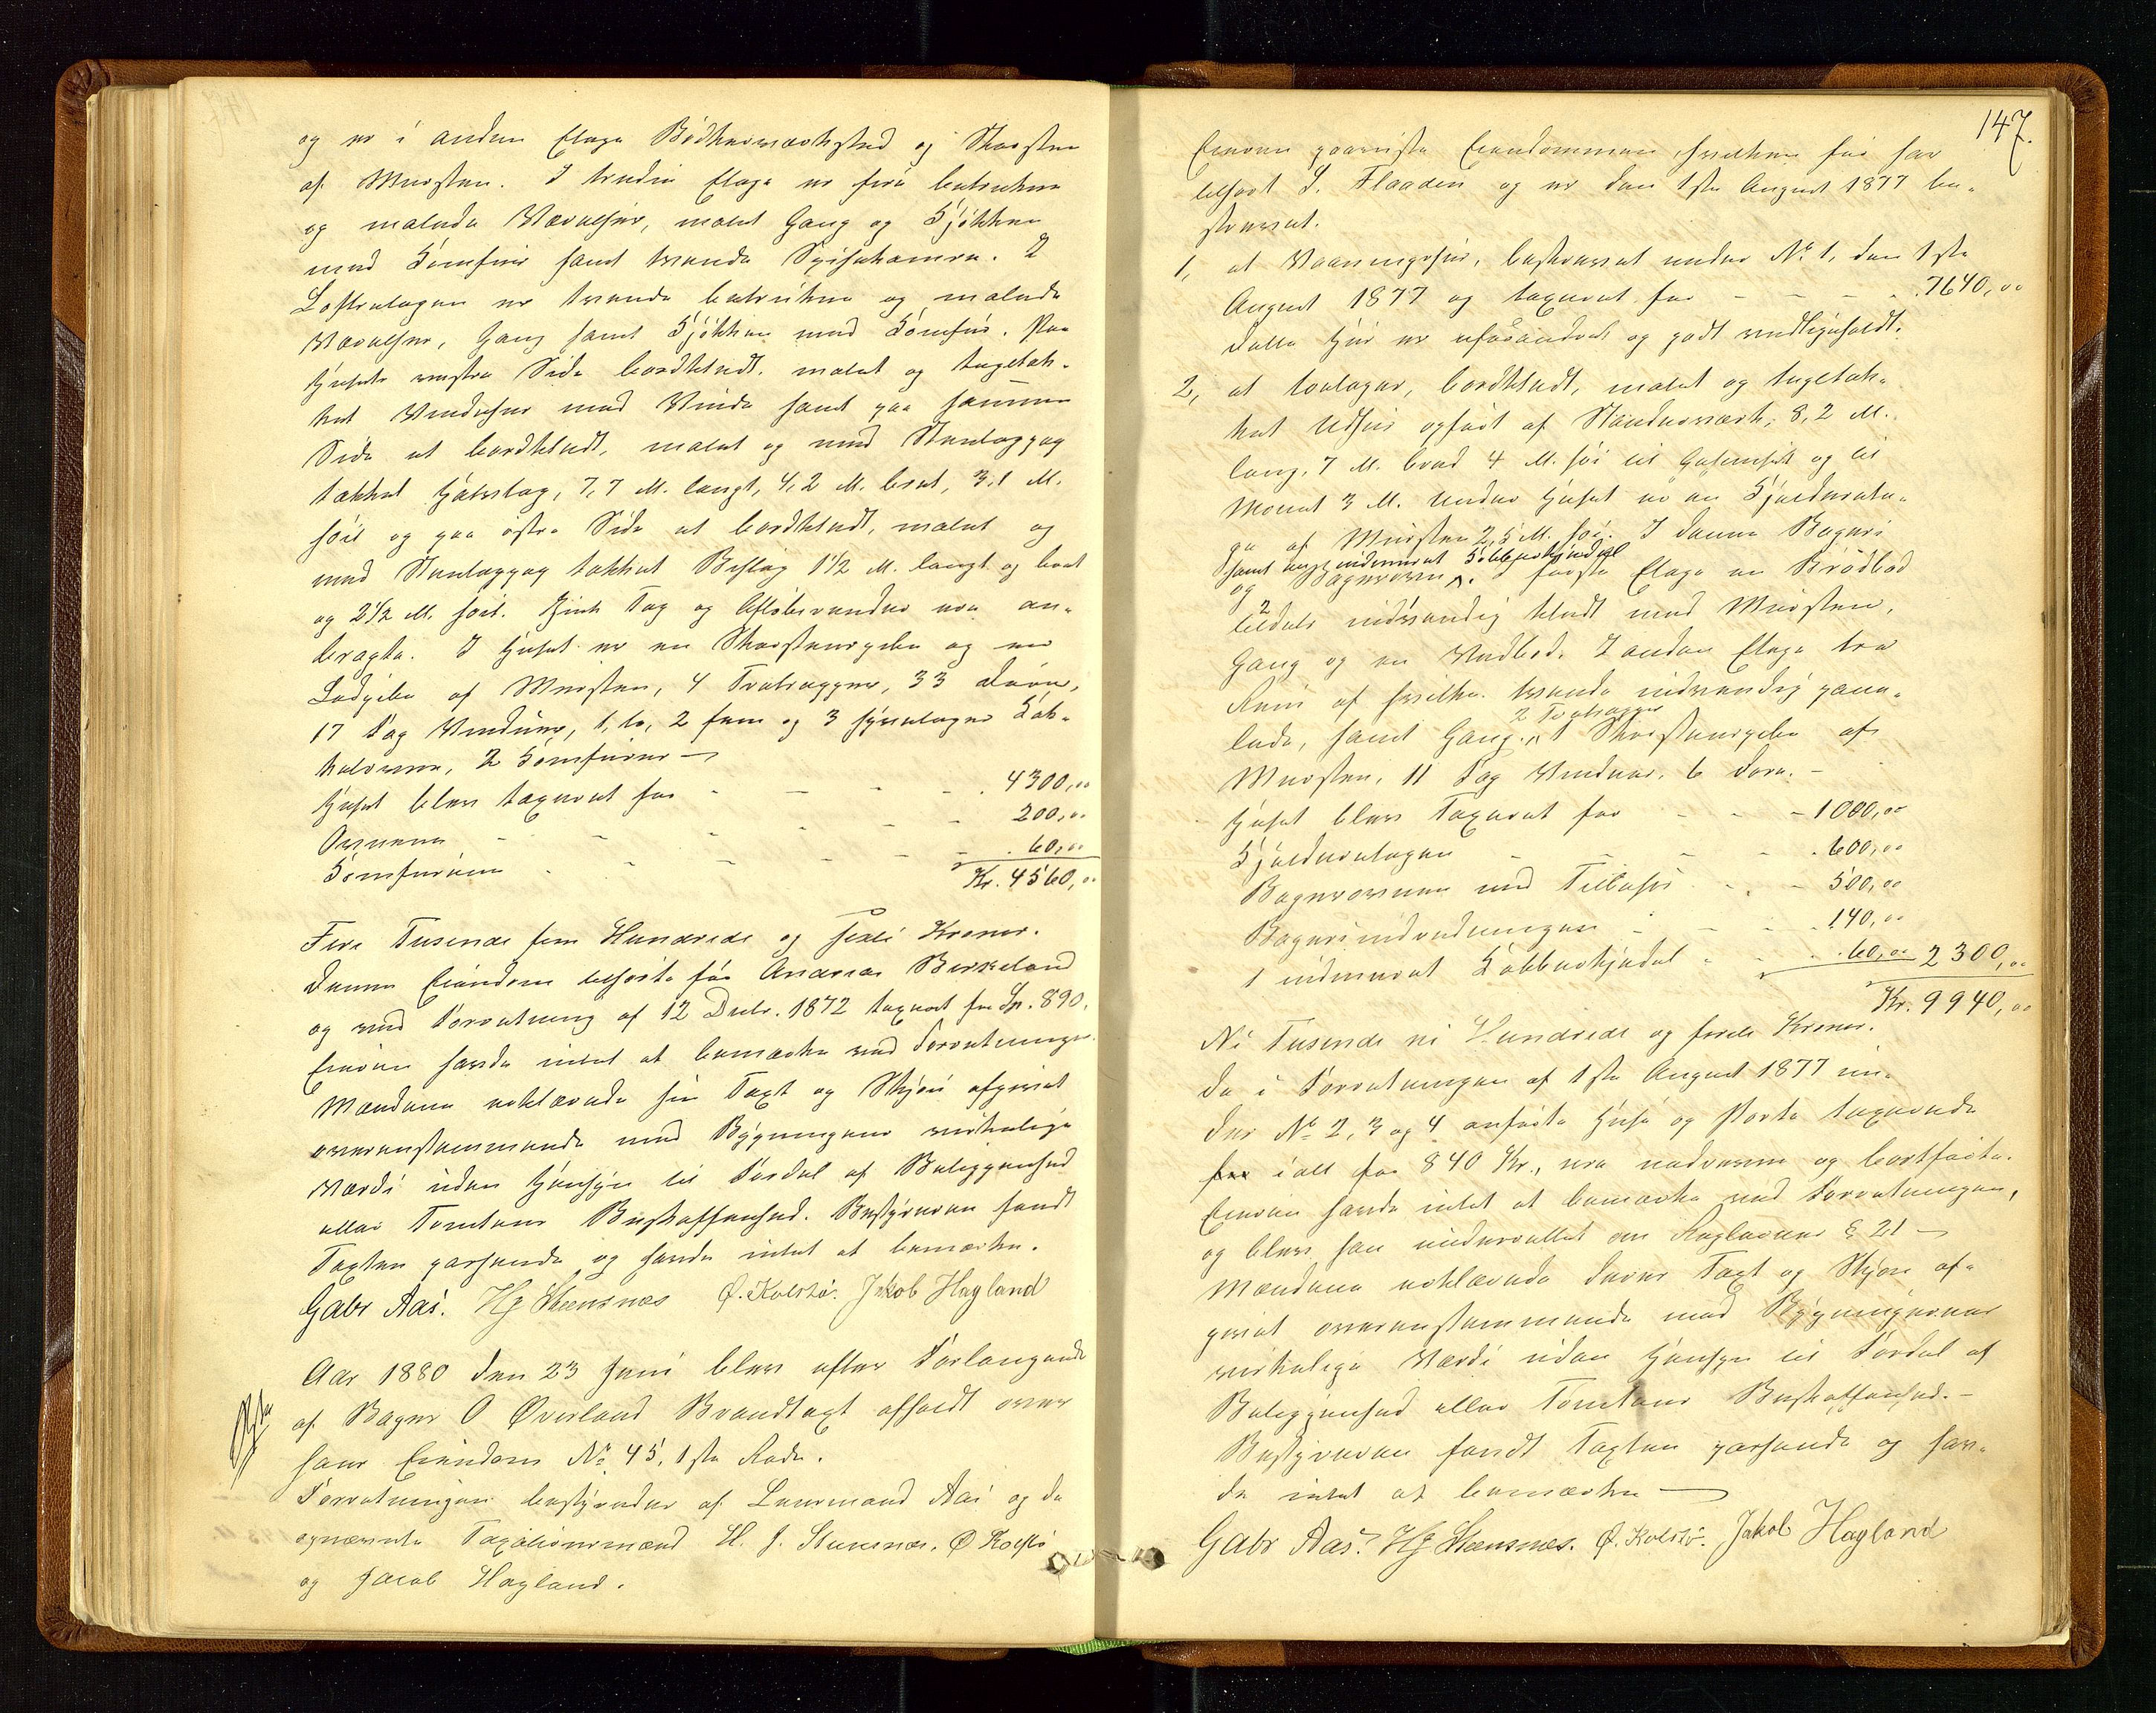 og er i anden Etage Bödkerværksted og Skorsten
af Mursten. I tredie Etage er fire betrukne
og malede Værelser, malet Gang og Kjökken
med Komfur samt tvende Spisekamre. I
Loftsetagen er tvende betrukne og malede
Værelser, Gang samt Kjökken med Komfur. Paa
Husets vestre Side bordklædt, malet og tegltæk-
ket Vindehus med Vinde samt paa samme
Side et bordklædt, malet og med Stenlagtag
tækket Halvtag, 7,7 M. langt, 4,2 M. bredt, 3,1 M.
höit og paa östre Side et bordklædt, malet og
med Stenlagtag tækket Bislag 1 1/2 M. langt og bredt
og 2 1/2 M. höit. Zink Tag og Aflöbsrender ere an-
bragte. I Huset er en Skorstenspibe og en
Lodpibe af Mursten, 4 Trætrapper, 33 Döre,
17 Fag Vinduer, 1 to, 2 fem og 3 fyretages Kak-
kelovne, 2 Komfurer
Huset blev taxeret for - - - 4300,00
Ovnene - - - 200,00
Komfurene - - - 60,00
Kr. 4560,00
Fire Tusende fem Hundrede og sexti Kroner.
Denne Eiendom tilhörte för Andreas Birkeland
og ved Forretning af 12 Decbr. 1872 taxeret for Sp. 890.
Eieren havde intet at bemærke ved Forretningen.
Mændene erklærede sin Taxt og Skjön afgivet
overensstemmende med Bygningens virkelige
Værdi uden Hensyn til Fordel af Beliggenhed
eller Tomtens Beskaffenhed. Bestyreren fandt
Taxten passende og havde intet at bemærke.
Gabr Aas. HJ Steensnæs Ø. Kolstø. Jakob Hagland
Aar 1880 den 23 Juni blev efter Forlangende
af Bager O Øverland Brandtaxt afholdt over
hans Eiendom No 45, 1ste Rode.
Forretningen bestyredes af Lensmand Aas og de
opnævnte Taxationsmænd H. J. Steensnæs, Ø Kolstø
og Jacob Hagland.
147.
Eieren paaviste Eiendommen, hvilken för har
tilhört S. Flaaden og er den 1ste August 1877 be-
skrevet.
1, et Vaaningshus, beskrevet under No 1, den 1ste
August 1877 og taxeret for - - - 7640,00
Dette Hus er uforandret og godt vedligeholdt.
2, et toetages, bordklædt, malet og tegltæk-
ket Udhus opfört af Stenderværk, 8,2 M.
lang, 7 M. bred 4 M. höi til Gesimsen og til
Mönet 3 M. Under Huset er en Kjældereta-
ge af Mursten 2,5 M. höi. I denne Bageri
samt en indmuret Kobberkjedel
og Bagerovn. I förste Etage en Brödbod
tildels indvendig klædt med Mursten,
Gang og en Vedbod. I anden Etage tre
Rum af hvilke tvende indvendig pane-
2 Trætrapper
lede, samt Gang, 1 Skorstenspibe af
Mursten, 11 Fag Vinduer, 6 Döre. -
Huset blev Taxeret for - - - 1000,00
Kjælderetagen - - - 600,00
Bagerovnen med Tilbehör - - 500,00
Bageriindredningen - - - 140,00
1 indmuret Kobberkjedel - - 60,00 2300,00
Kr. 9940,00
Ni Tusende ni Hundrede og forti Kroner.
De i Forretningen af 1ste August 1877 un-
der No 2, 3 og 4 anförte Huse og Porte taxerede
for ialt for 840 Kr., ere nedrevne og bortförte.
Eieren havde intet at bemærke ved Forretningen,
og blev han underrettet om Reglernes § 21
Mændene erklærede deres Taxt og Skjön af-
givet overensstemmende med Bygningernes
virkelige Værdi uden Hensyn til Fordel af
Beliggenhed eller Tomtens Beskaffenhed. -
Bestyreren fandt Taxten passende og hav-
de intet at bemærke
Gabr Aas. HJ Steensnæs. Ø. Kolstø. Jakob Hagland